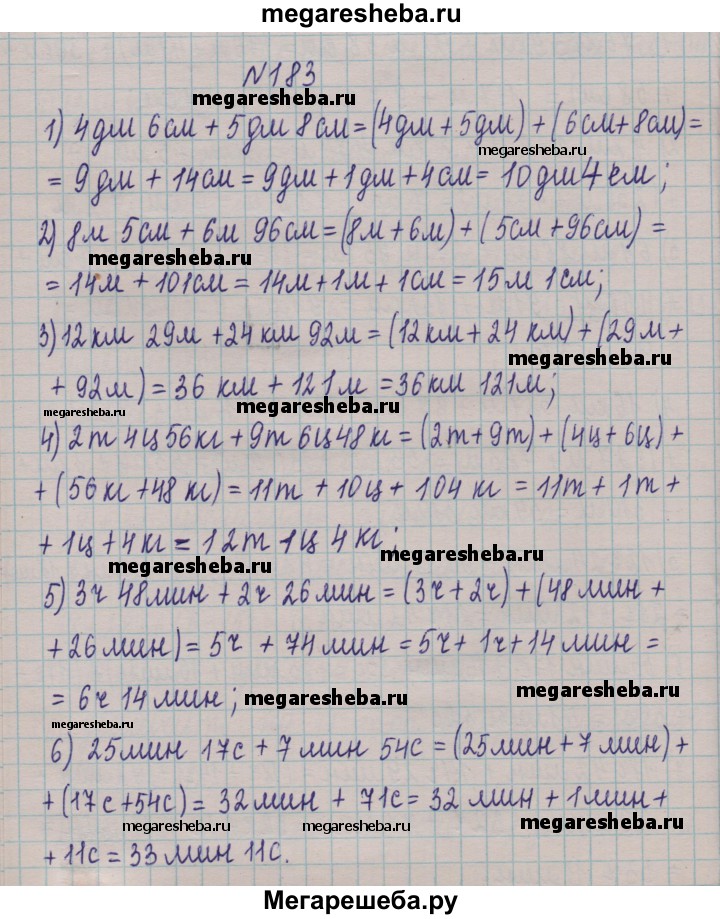 megaresheba.ru
№183
megaresheba.ru
1) 4дм 6см + 5дм 8см = (4дм + 5дм) + (6см + 8см) =
megaresheba.ru
= 9дм + 14см = 9дм + 1дм + 4см = 10дм 4см;
2) 8м 5см + 6м 96см = (8м + 6м) + (5см + 96см) =
megaresheba.ru
= 14м + 101см = 14м + 1м + 1см = 15м 1см;
3) 12км 29м + 24км 92м = (12км + 24 км) + (29м +
megaresheba.ru
+ 92м) = 36 км + 121м = 36км 121м;
megaresheba.ru megaresheba.ru
4) 2т 4ц 56кг + 9т 6ц 48кг = (2т + 9т) + (4ц + 6ц) +
+ (56кг + 48 кг) = 11т + 10ц + 104 кг = 11т + 1т +
+ 1ц + 4кг = 12т 1ц 4кг;
megaresheba.ru megaresheba.ru
5) 3ч 48мин + 2ч 26мин = (3ч + 2ч) + (48мин +
+ 26мин) = 5ч + 74мин = 5ч + 1ч + 14мин =
= 6ч 14мин; megaresheba.ru megaresheba.ru
megaresheba.ru
6) 25мин 17с + 7мин 54с = (25мин + 7мин) +
+ (17с + 54с) = 32мин + 71с = 32 мин + 1мин +
megaresheba.ru megaresheba.ru megaresheba.ru
+ 11с = 33мин 11с.
Мегарешеба.ру